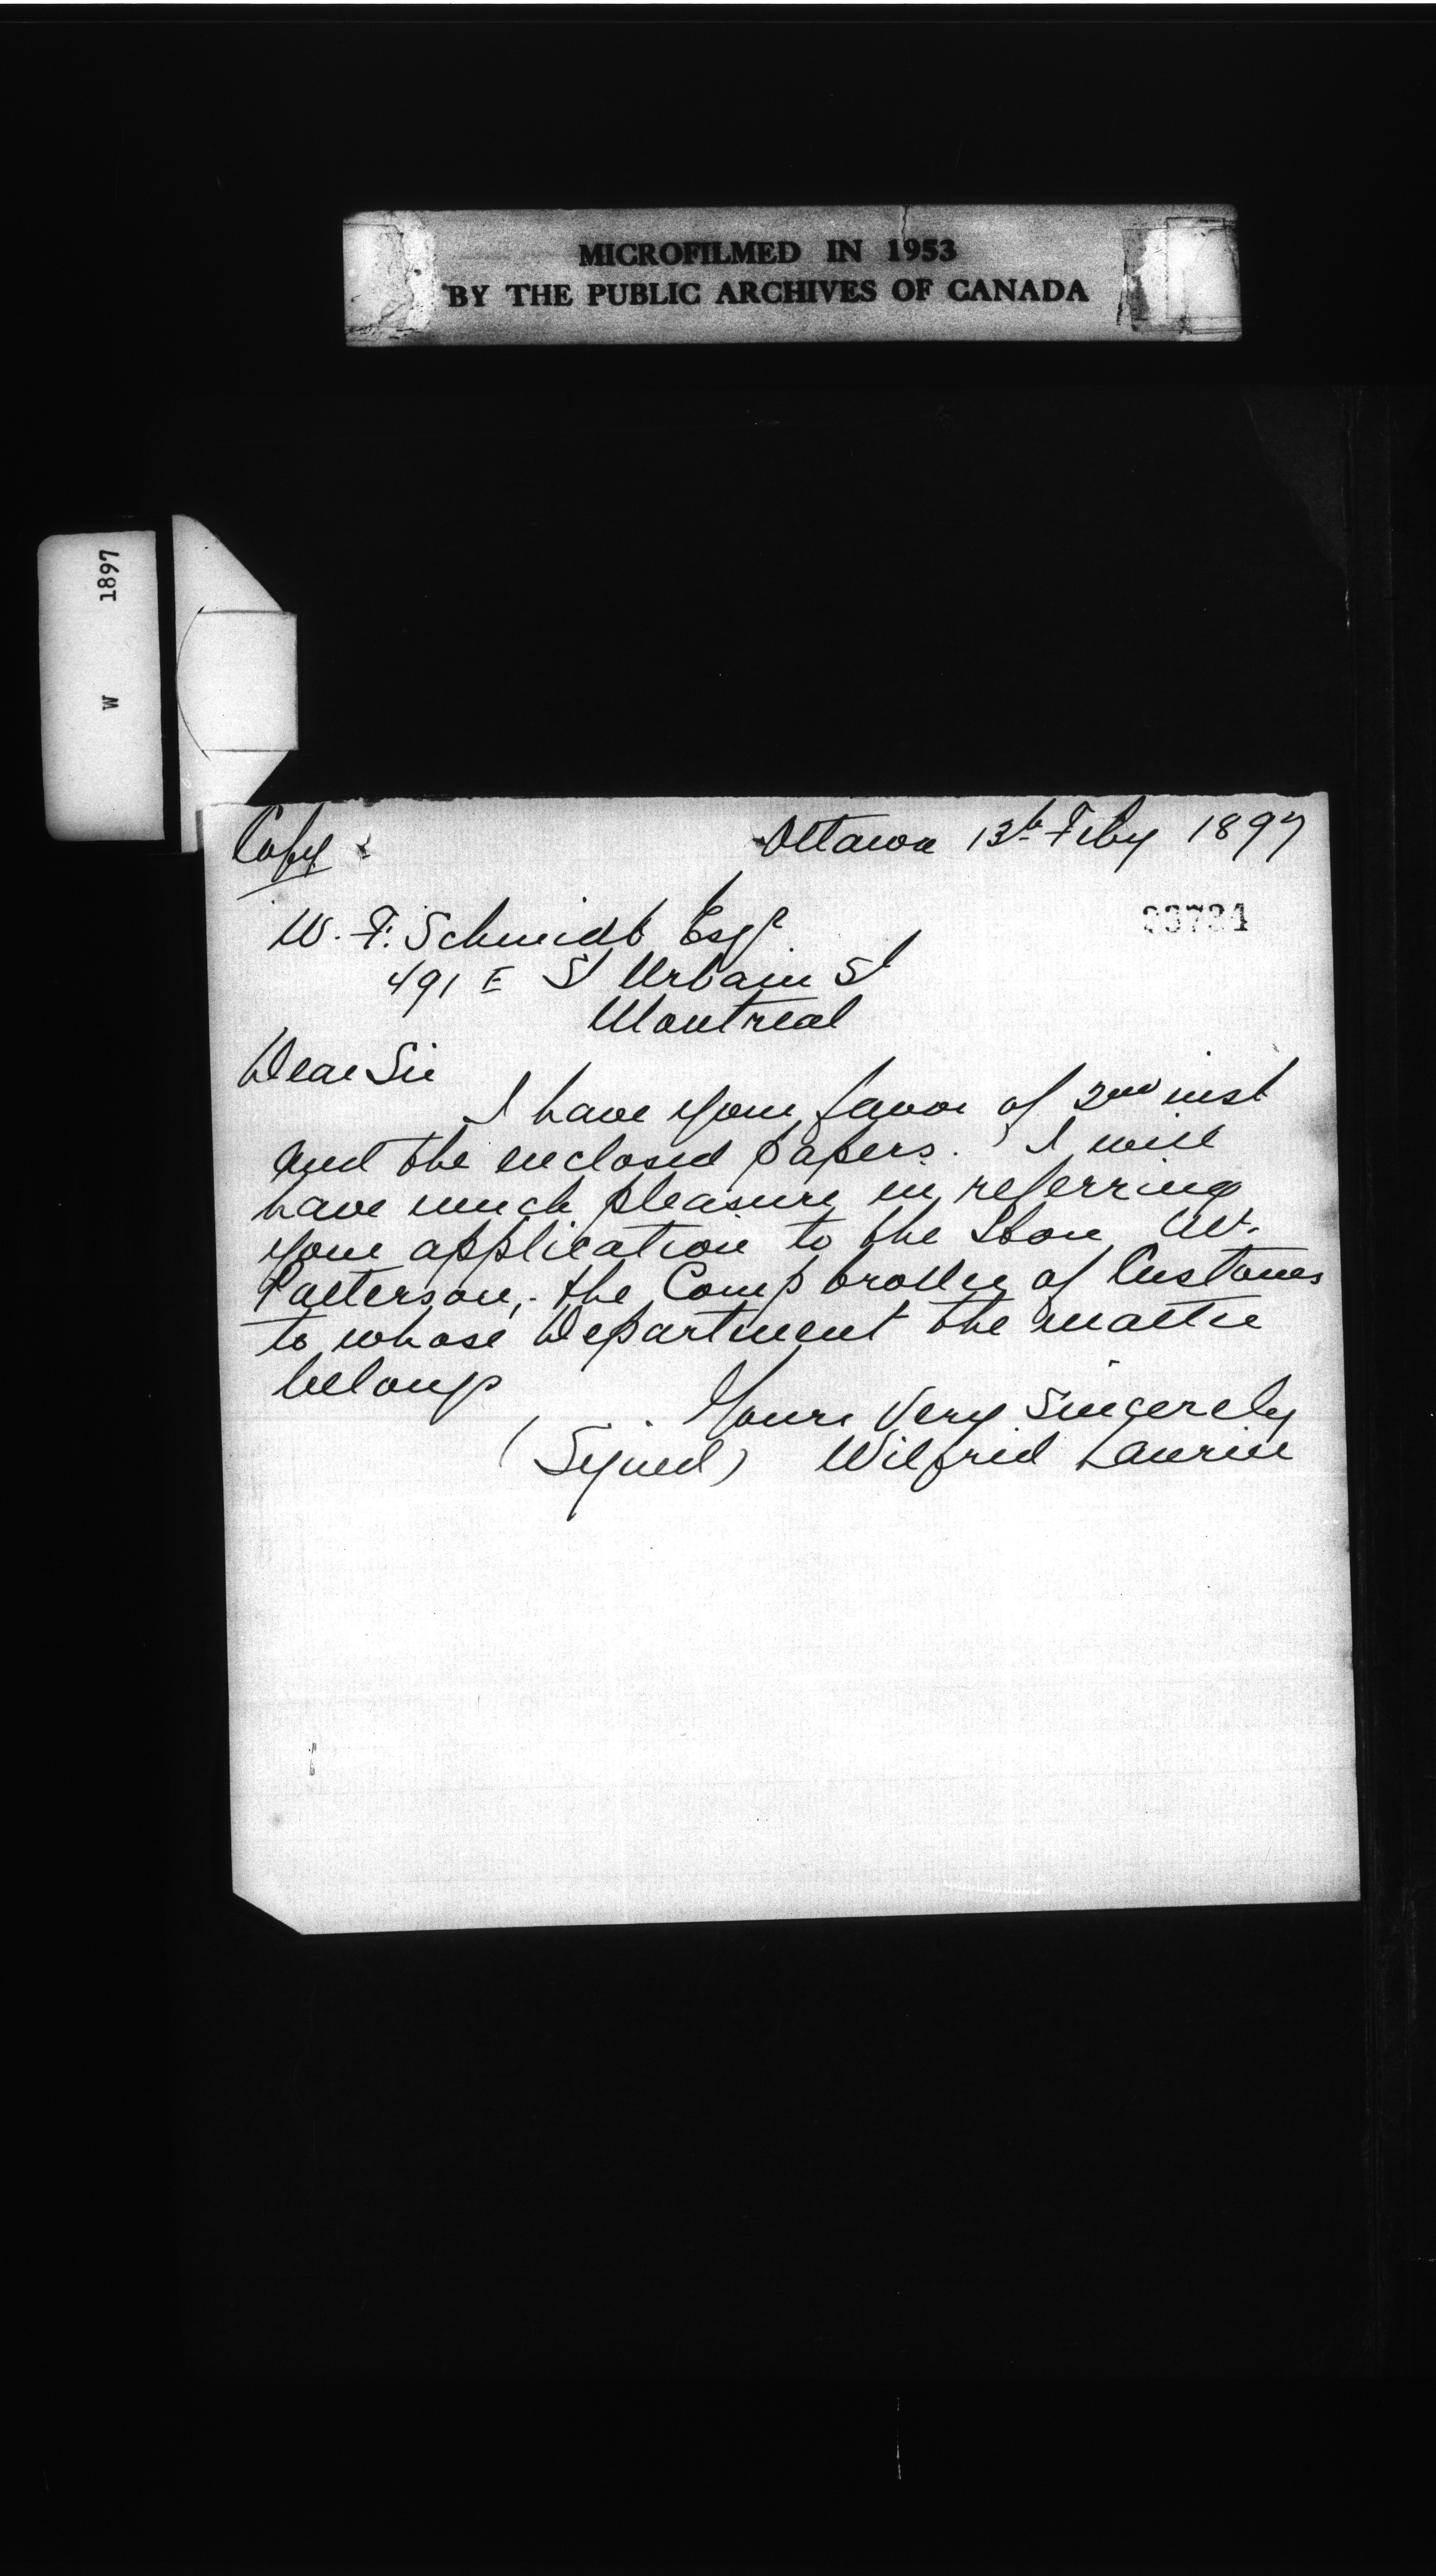 MICROFILMED IN 1953
BY THE PUBLIC ARCHIVES OF CANADA
W 1897
Copy
Ottawa 13th Feby 1897
W. F. Schmidt Esqr
491 E St Urbain St
Montreal
Dear Sir
I have your favor of 2nd inst
and the enclosed papers. I will
have much pleasure in referring
your application to the Hon Wm.
Patterson, the Comptroller of Customs
to whose Department the matter
belongs
Yours Very Sincerely
(Signed) Wilfrid Laurier